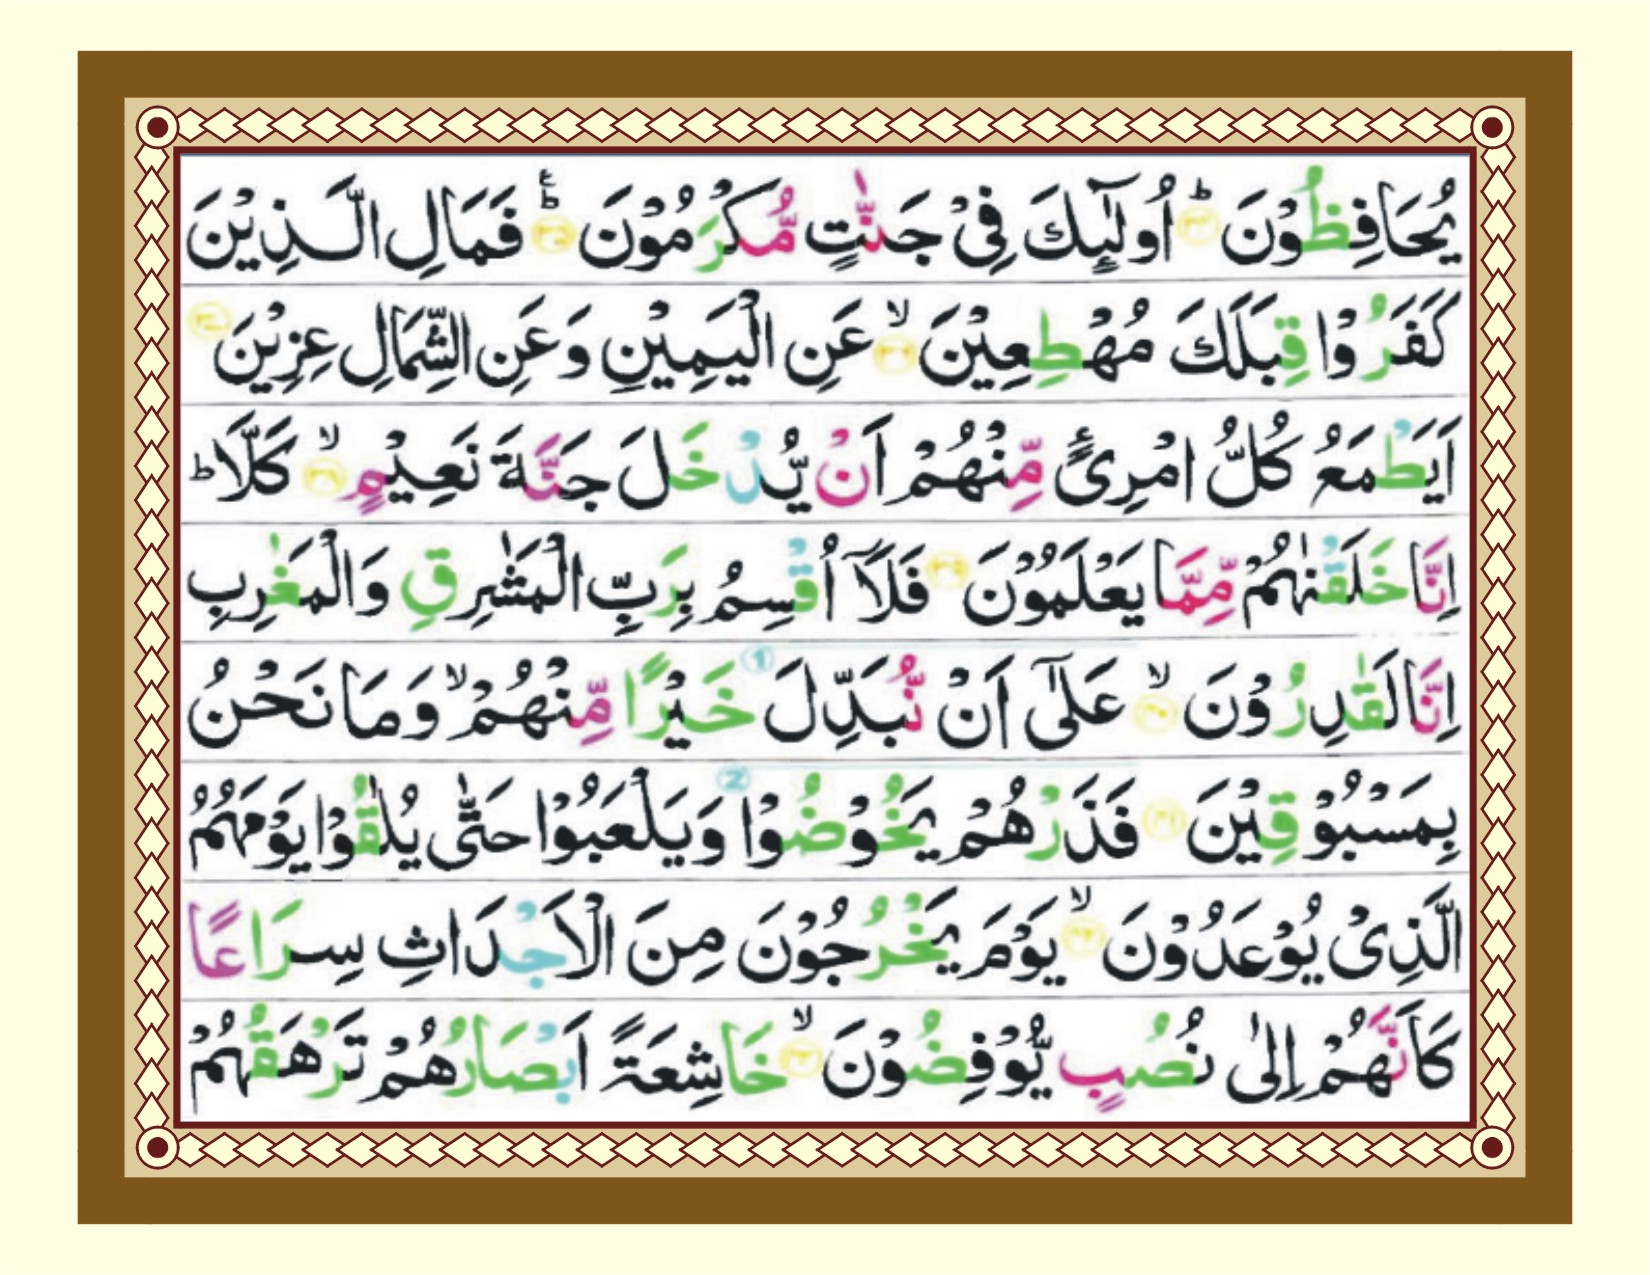 يُحَافِظُوْنَ ۟ؕ اُولٰٓئِكَ فِیْ جَنّٰتٍ مُّكْرَمُوْنَ ۟ؕ۠ فَمَالِ الَّذِیْنَ
كَفَرُوْا قِبَلَكَ مُهْطِعِیْنَ ۟ۙ عَنِ الْیَمِیْنِ وَعَنِ الشِّمَالِ عِزِیْنَ ۟
اَیَطْمَعُ كُلُّ امْرِئٍ مِّنْهُمْ اَنْ یُّدْخَلَ جَنَّةَ نَعِیْمٍ ۟ۙ كَلَّا ؕ
اِنَّا خَلَقْنٰهُمْ مِّمَّا یَعْلَمُوْنَ ۟ فَلَاۤ اُقْسِمُ بِرَبِّ الْمَشٰرِقِ وَالْمَغٰرِبِ
اِنَّا لَقٰدِرُوْنَ ۟ۙ عَلٰۤی اَنْ نُّبَدِّلَ ① خَیْرًا مِّنْهُمْ ۙ وَمَا نَحْنُ
بِمَسْبُوْقِیْنَ ۟ فَذَرْهُمْ یَخُوْضُوْا ② وَیَلْعَبُوْا حَتّٰی یُلٰقُوْا یَوْمَهُمُ
الَّذِیْ یُوْعَدُوْنَ ۟ۙ یَوْمَ یَخْرُجُوْنَ مِنَ الْاَجْدَاثِ سِرَاعًا
كَاَنَّهُمْ اِلٰی نُصُبٍ یُّوْفِضُوْنَ ۟ۙ خَاشِعَةً اَبْصَارُهُمْ تَرْهَقُهُمْ